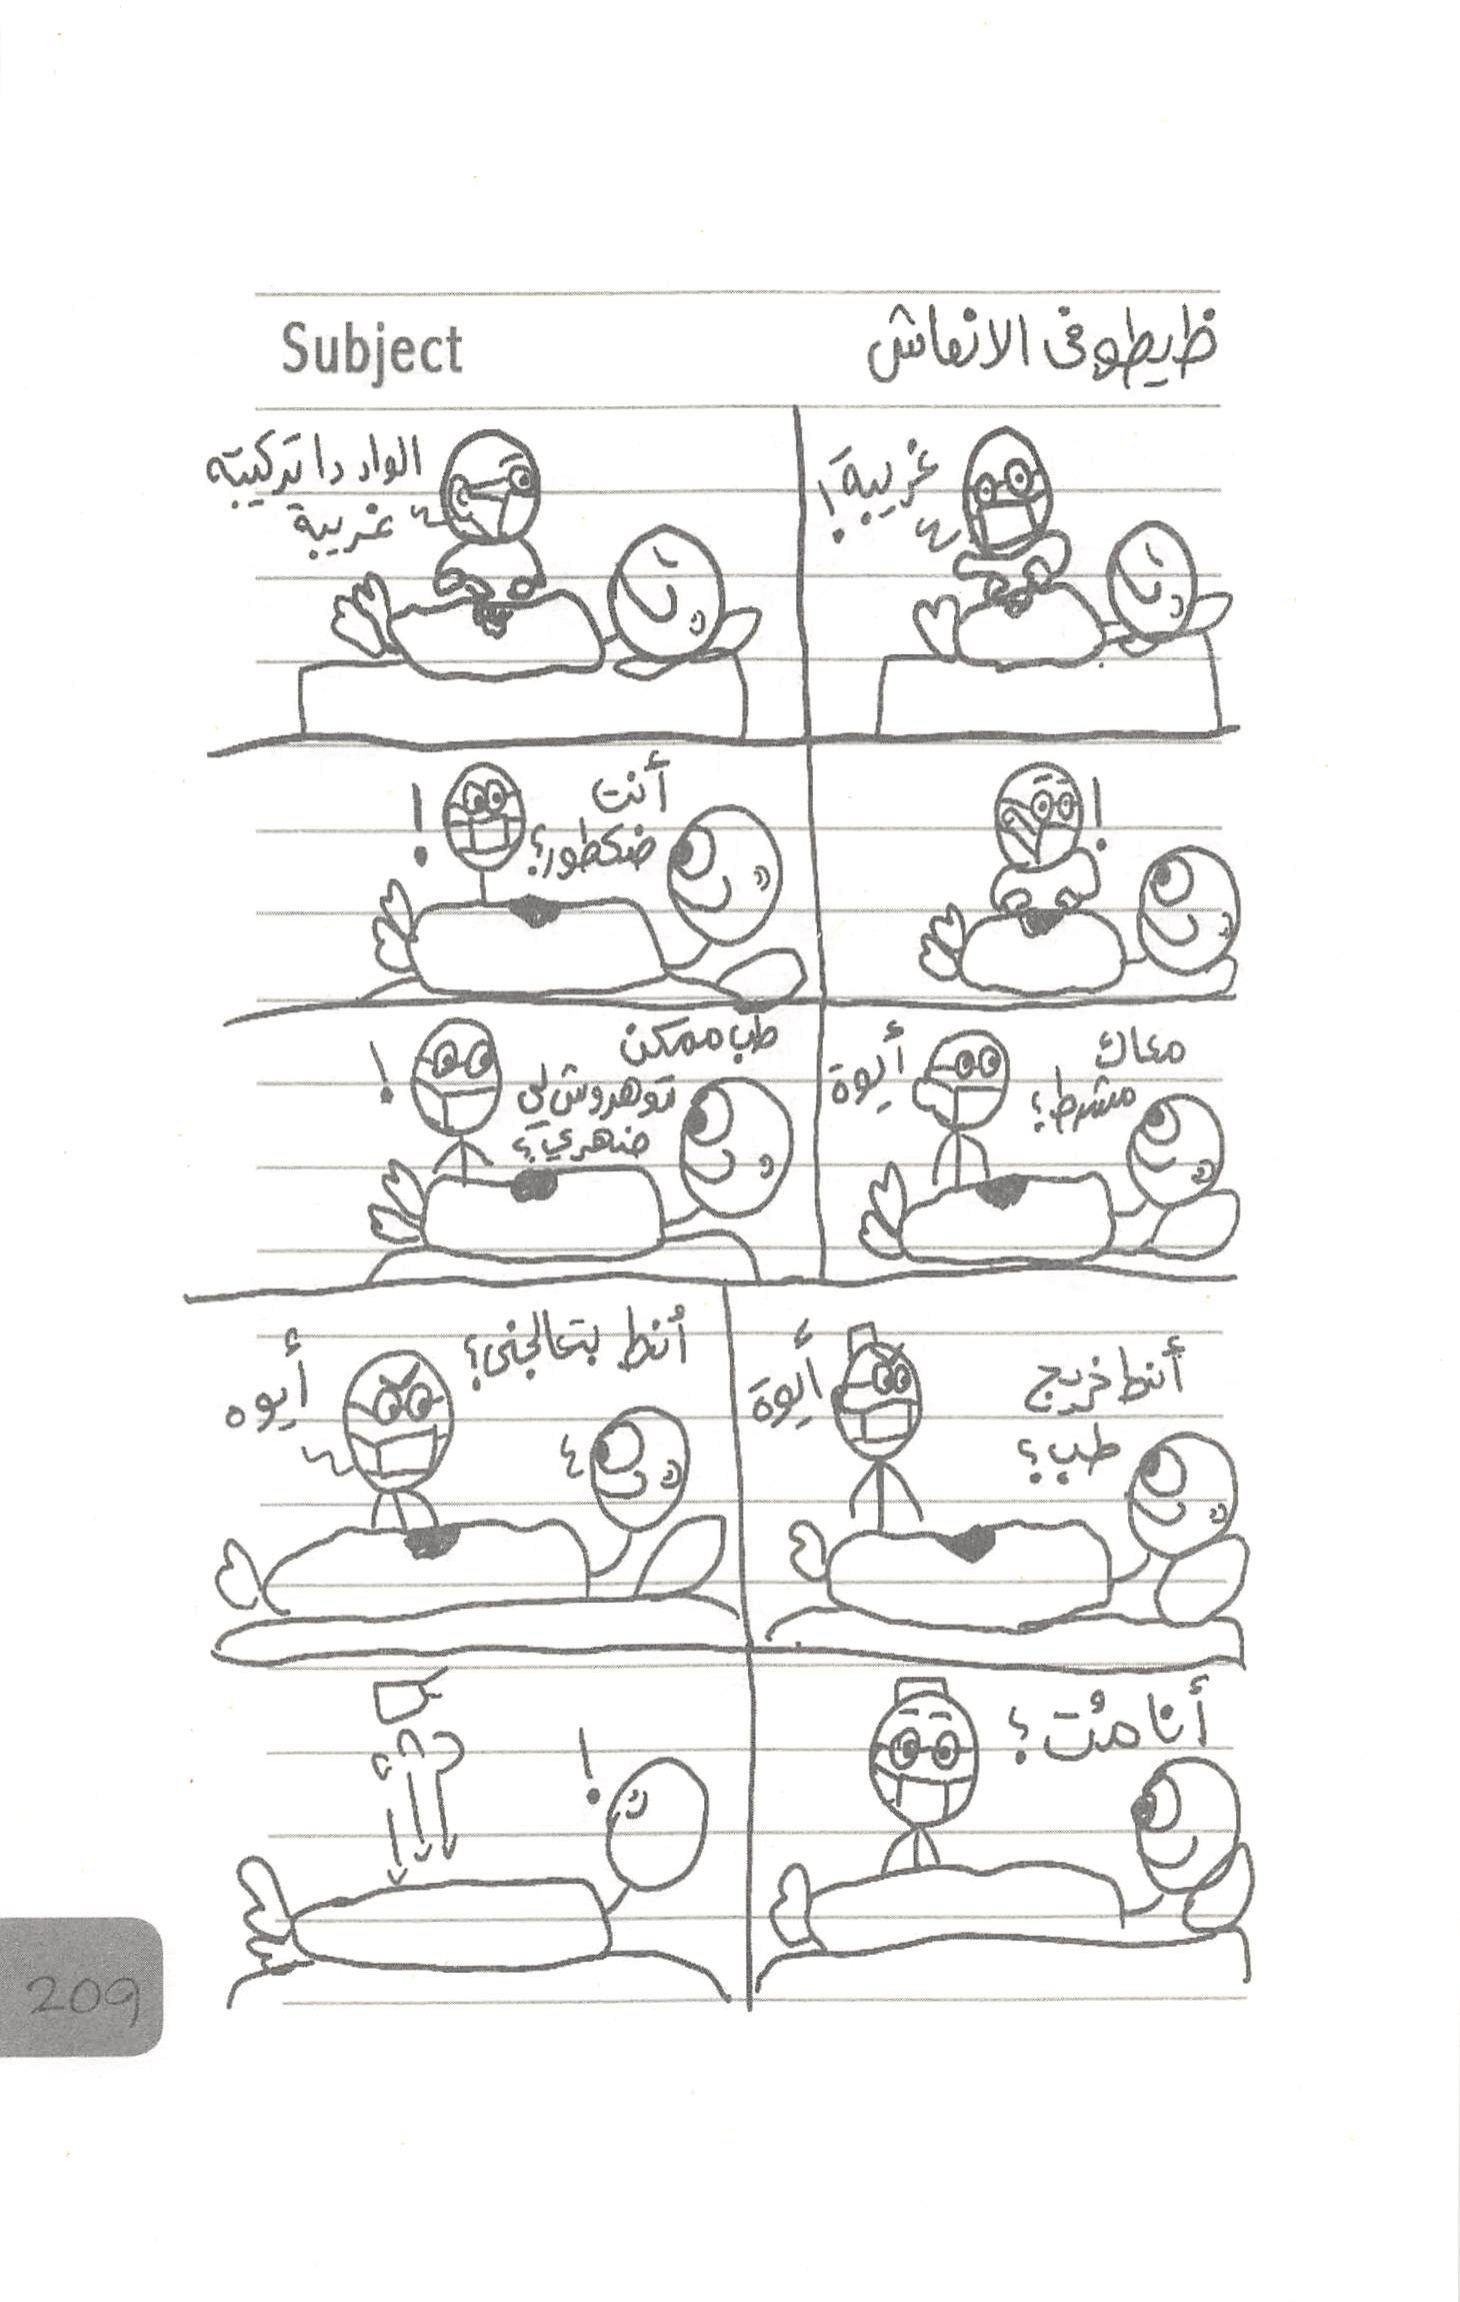 Subject
ظيطو فى الانعاش
غريبة!
الواد دا تركيبته
غريبة
!
أنت
ضكطور؟
!
معاك
مشرط؟
أيوة
طب ممكن
توهروش لي
ضهري؟
!
أنط خريج
طب؟
أيوة
أنط بتعالجنى؟
أيوه
أنا مُت؟
!
209